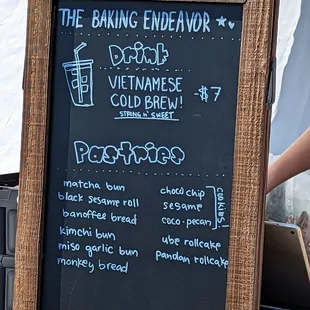 THE BAKING ENDEAVOR
Drink
VIETNAMESE
COLD BREW!
-$7
STRONG n' SWEET
Pastries
matcha bun
black sesame roll
banoffee bread
kimchi bun
miso garlic bun
monkey bread
choco chip
sesame
coco-pecan
cookies!
ube rollcake
pandan rollcake